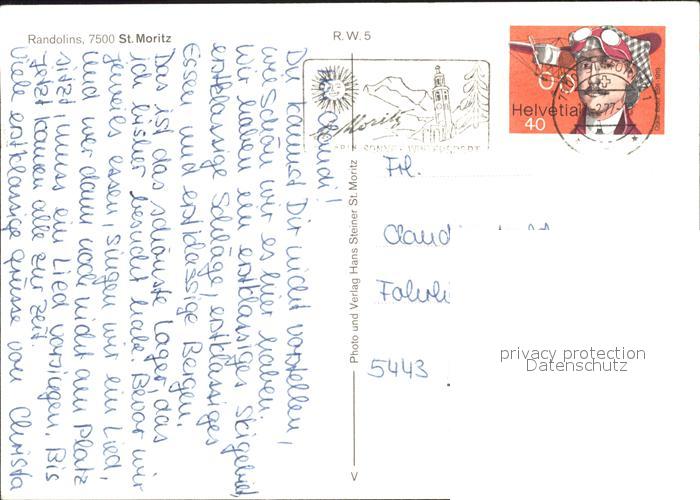 Randolins, 7500 St. Moritz
R. W. 5
St. Moritz
Helvetia
40
Liebe Claudi!
Du kannst Dir nicht vorstellen,
wie schön wir es hier haben.
Wir haben ein erstklassiges Skigebiet,
erstklassige Schläge, erstklassiges
Essen und erstklassige Bergen.
Das ist das schönste Lager, das
ich bisher besucht habe. Bevor wir
jeweils essen, singen wir ein Lied,
und wer dann noch nicht am Platz
sitzt, muss ein Lied vorsingen. Bis
jetzt kamen alle zur Zeit.
Viele erstklassige Grüsse von Christa
Photo und Verlag Hans Steiner St. Moritz
V
Frl.
Claud
5443
privacy protection
Datenschutz